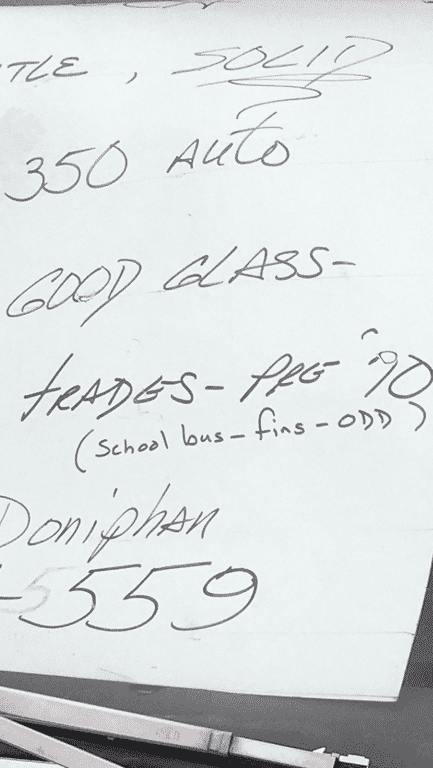 TLE, SOLID
350 Auto
GOOD GLASS-
tRADES- PRE '90
(School bus - fins - ODD)
Doniphan
-5559